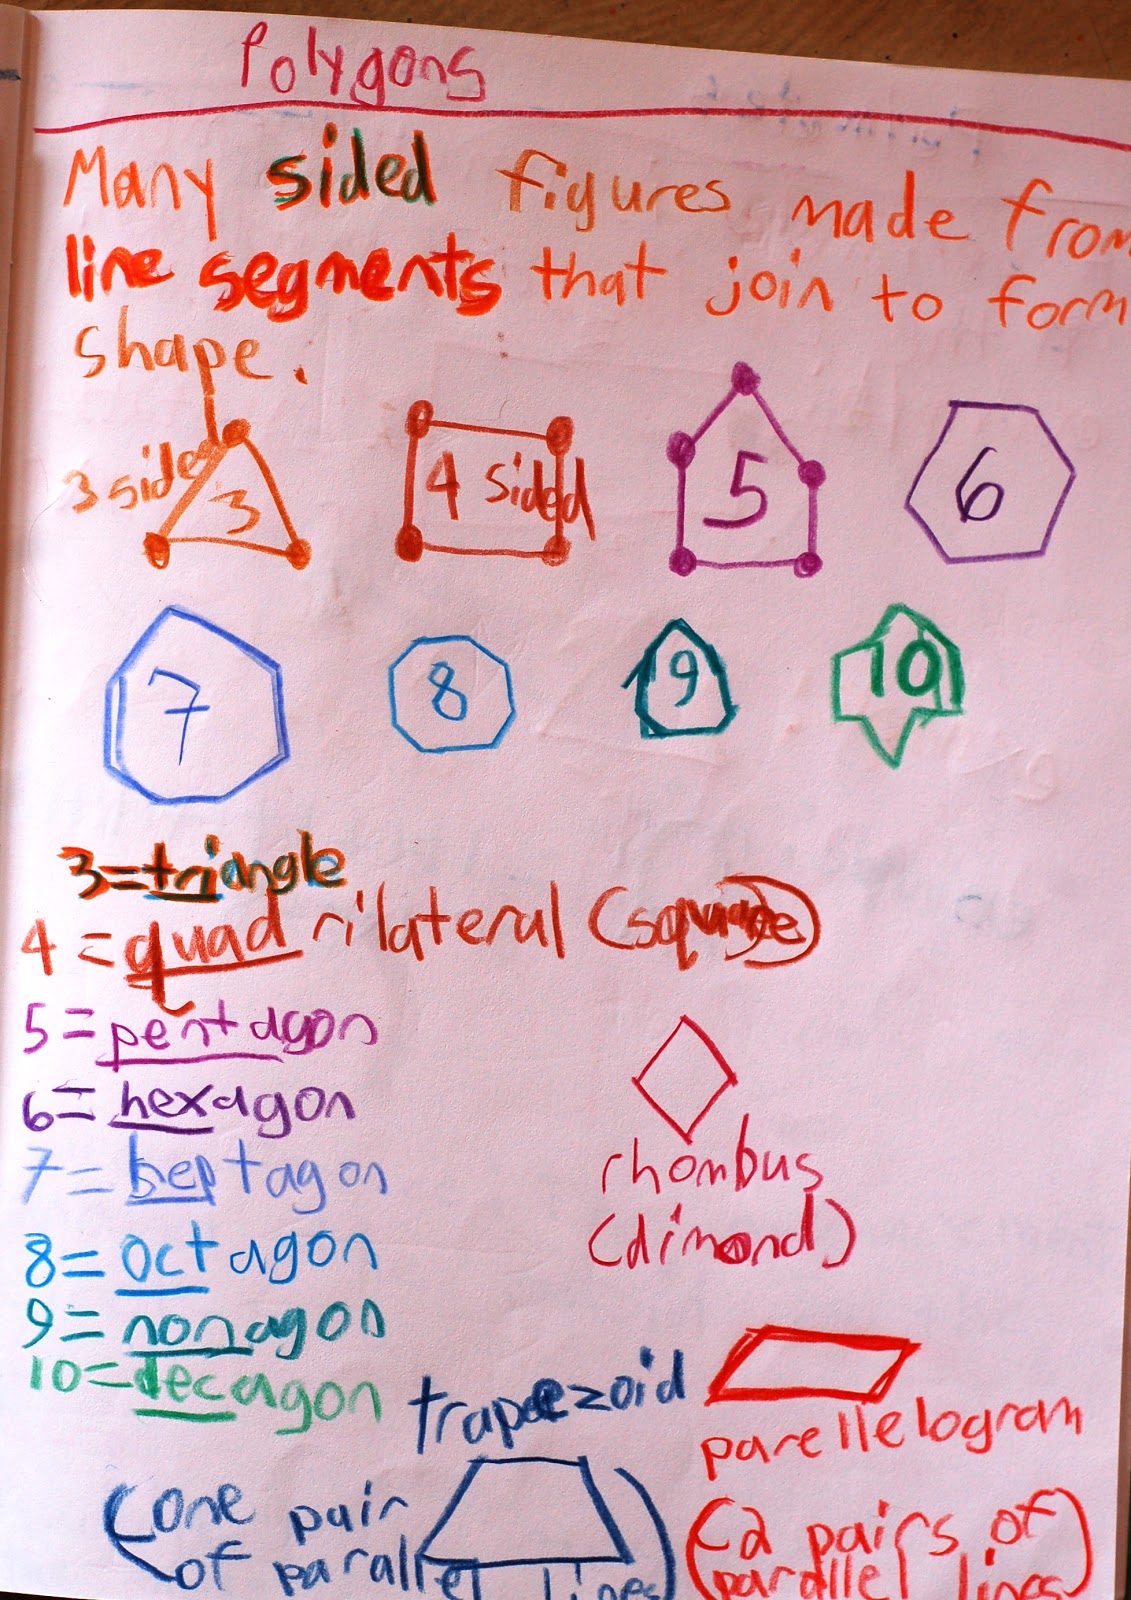 Polygons
Many sided figures made from
line segments that join to form
shape.
3 side
3
4 sided
5
6
7
8
9
10
3=triangle
4=quadrilateral (square)
5=pentagon
6=hexagon
7=heptagon
8=octagon
9=nonagon
10=decagon
rhombus
(dimond)
trapezoid
(one pair
of parallel lines)
parellelogram
(2 pairs of
parallel lines)